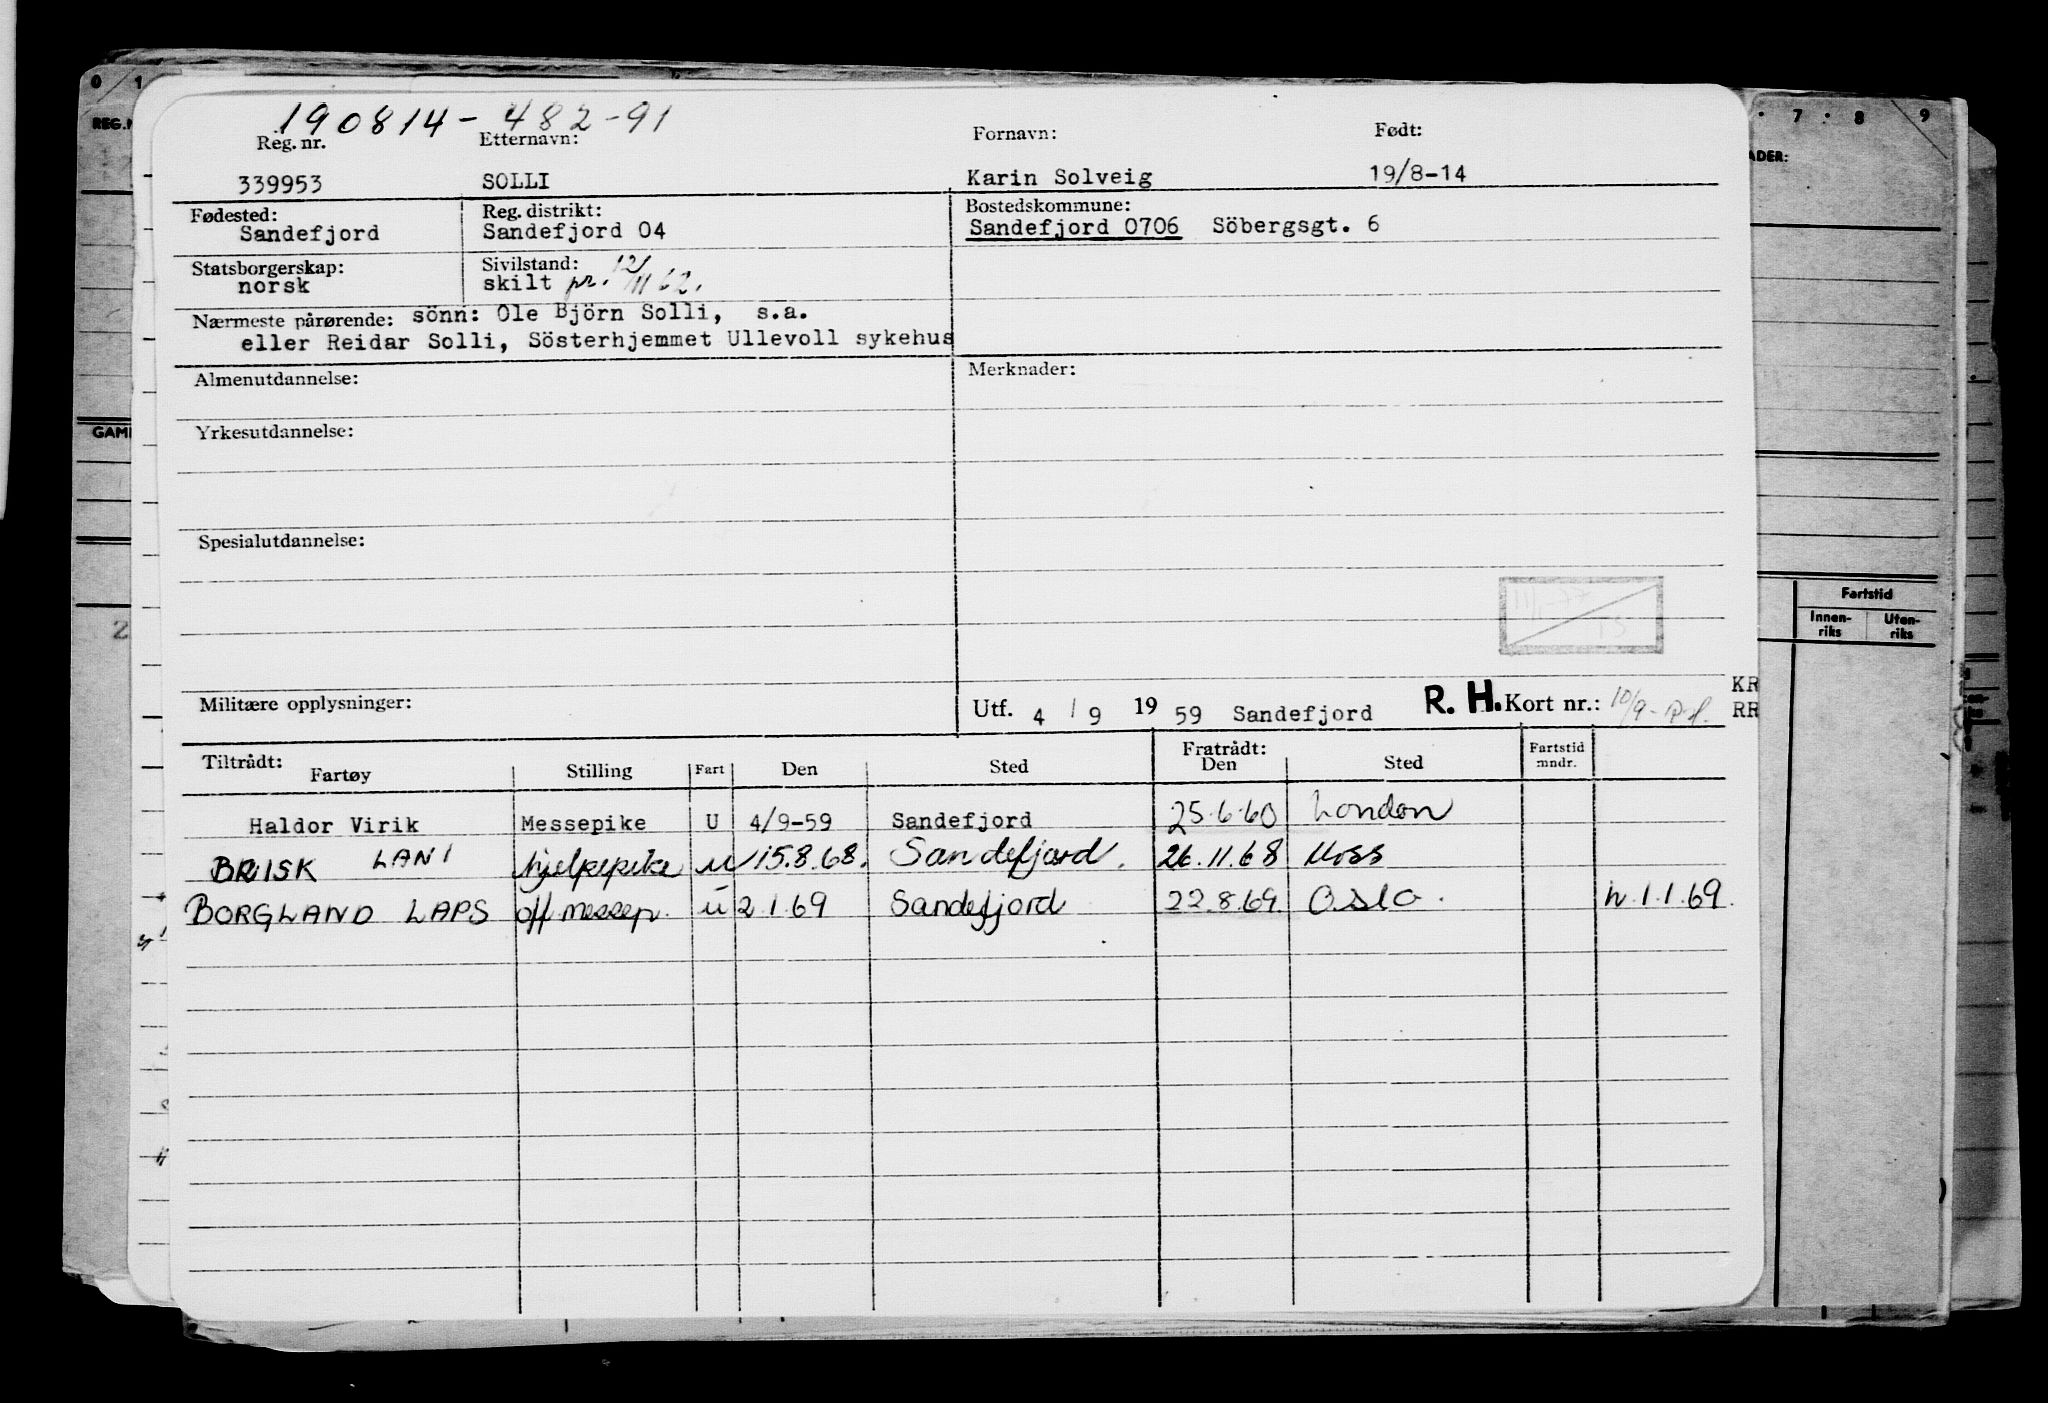 190814-482-91
Reg. nr. Etternavn: Fornavn: Født:
339953 SOLLI Karin Solveig 19/8-14
Fødested: Reg. distrikt: Bostedskommune:
Sandefjord Sandefjord 04 Sandefjord 0706 Söbergsgt. 6
Statsborgerskap: Sivilstand:
norsk skilt pr. 12/11 62.
Nærmeste pårørende: sönn: Ole Björn Solli, s.a.
eller Reidar Solli, Sösterhjemmet Ullevoll sykehus
Almenutdannelse: Merknader:
Yrkesutdannelse:
Spesialutdannelse:
Militære opplysninger: Utf. 4 / 9 19 59 Sandefjord R. H. Kort nr.: 10/9
KR
RR
Tiltrådt: Fratrådt:
Fartøy Stilling Fart Den Sted Den Sted Fartstid mndr.
Haldor Virik Messepike U 4/9-59 Sandefjord 25.6.60 London
BRISK LANI hjelpepike u 15.8.68. Sandefjord. 26.11.68 Moss
BORGLAND LAPS off messep. u 2.1.69 Sandefjord 22.8.69. Oslo. h.1.1.69.
0 1
REG.N
GAMM
2
7 8 9
ADER:
Fartstid
Innen-
riks
Uten-
riks